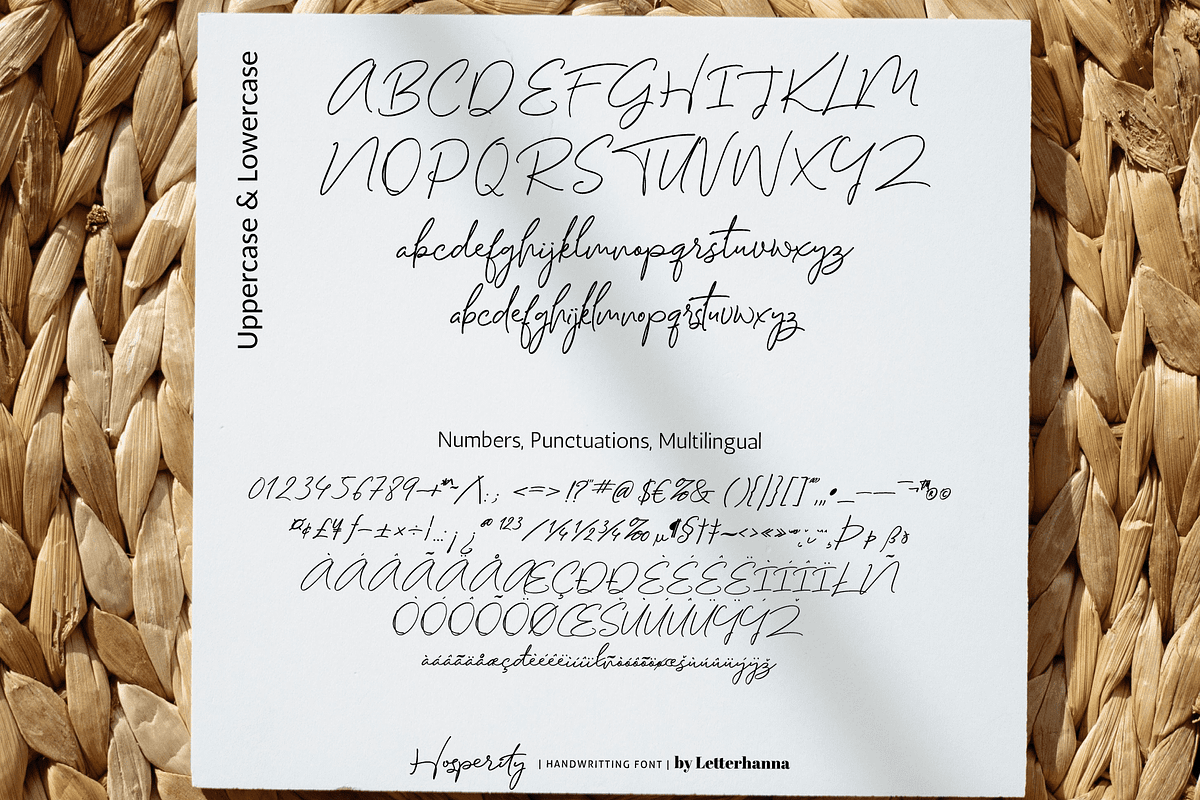 Uppercase & Lowercase
ABCDEFGHIJKLM
NOPQRSTUVWXYZ
abcdefghijklmnopqrstuvwxyz
abcdefghijklmnopqrstuvwxyz
Numbers, Punctuations, Multilingual
0123456789 <=> !? #@$€%& (){|}[]
£¥ƒ ±×÷ ª 123 /¼½¾‰µ¶§†‡~<>«» Þþßð
ÀÁÂÃÄÅÆÇÐĐÈÉÊËÌÍÎÏŁÑ
ÒÓÔÕÖØŒŠÙÚÛÜŸÝŽ
àáâãäåæçđèéêëìíîïłñòóôõöøœšùúûüýÿž
Hosperity | HANDWRITTING FONT | by Letterhanna